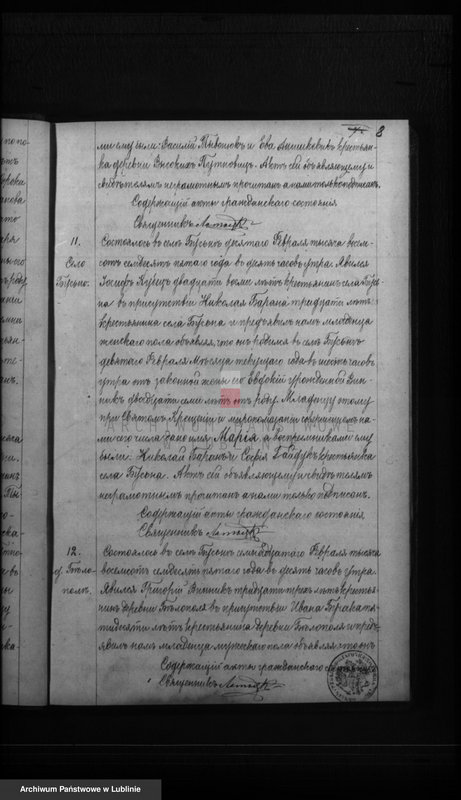 8
ми ему были: Василій и Ева крестьян-
ка деревни Высокихъ Актъ сей объявляющему и
свидѣтелямъ неграмотнымъ прочитанъ а нами только подписанъ.
Содержащій акты гражданскаго состоянія
Священникъ
11.
Село
Бусьно.
Состоялось въ селѣ Бусьнѣ десятаго Февраля тысяча восемь-
сотъ семдесятъ пятаго года въ десять часовъ утра. Явился
Іосифъ двадцати восми лѣтъ крестьянинъ села Бусь-
на въ присутствіи Николая Барана тридцати лѣтъ
крестьянина села Бусьна и предъявилъ намъ младенца
женскаго пола объявляя, что онъ родился въ селѣ Бусьнѣ
девятаго Февраля мѣсяца текущаго года въ шесть часовъ
утра отъ законной жены его Евдокіи урожденной Вин-
никъ двадцати семи лѣтъ отъ роду. Младенцу этому
при Святомъ Крещеніи и мѵропомазаніи совершенномъ на-
ми сего числа дано имя Марія, а воспріемниками ему
были: Николай Баранъ и Софія Гайдукъ крестьянка
села Бусьна. Актъ сей объявляющему и свидѣтелямъ
неграмотнымъ прочитанъ а нами только подписанъ.
Содержащій акты гражданскаго состоянія
Священникъ
12.
д. Бѣло-
поле.
Состоялось въ селѣ Бусьнѣ семнадцатаго Февраля тысяча
восемьсотъ семдесятъ пятаго года въ десять часовъ утра.
Явился Григорій Винникъ тридцати трехъ лѣтъ крестья-
нинъ деревни Бѣлополя въ присутствіи Ивана
лѣтъ крестьянина деревни Бѣлополя и предъ-
явилъ намъ младенца мужескаго пола объявляя, что онъ
Содержащій акты гражданскаго состоянія
Священникъ
Archiwum Państwowe w Lublinie